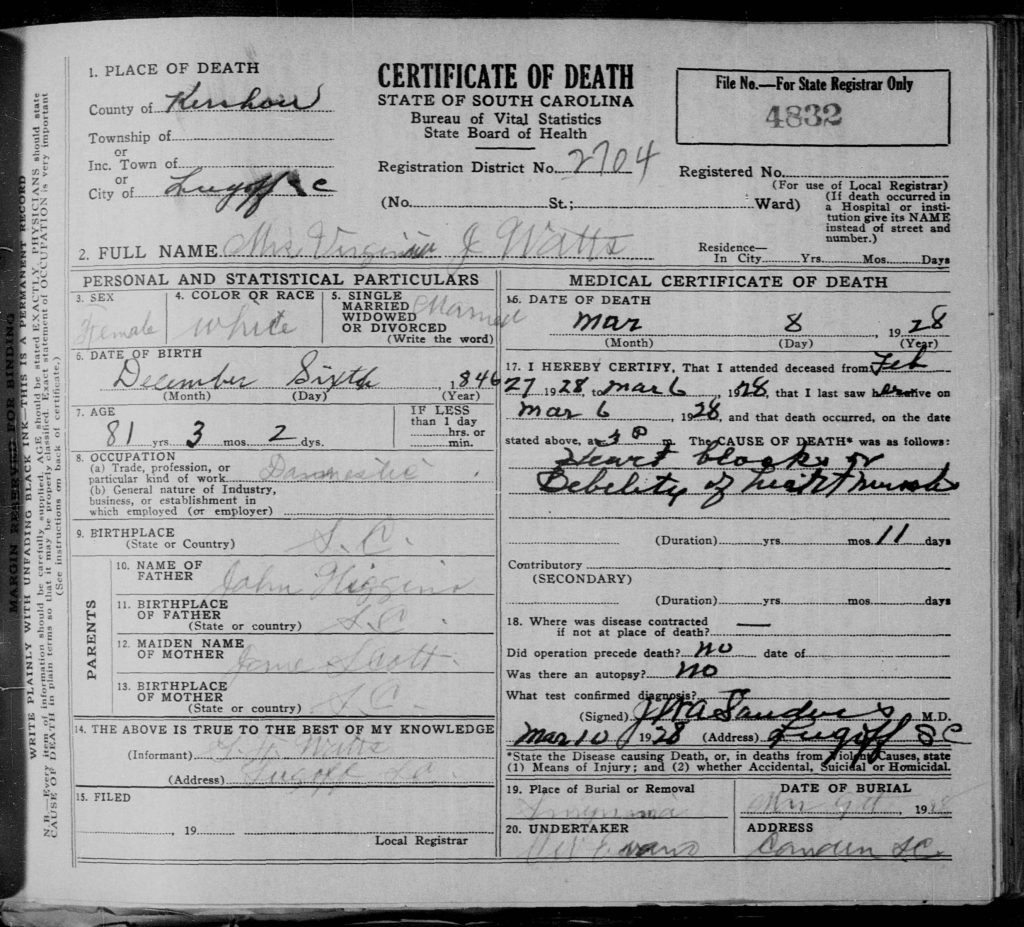 MARGIN RESERVED FOR BINDING
WRITE PLAINLY WITH UNFADING BLACK INK—THIS IS A PERMANENT RECORD
N.B.—Every item of information should be carefully supplied. AGE should be stated EXACTLY. PHYSICIANS should state
CAUSE OF DEATH in plain terms so that it may be properly classified. Exact statement of OCCUPATION is very important
(See instructions on back of certificate.)
CERTIFICATE OF DEATH
STATE OF SOUTH CAROLINA
Bureau of Vital Statistics
State Board of Health
File No.—For State Registrar Only
4832
1. PLACE OF DEATH
County of Kershaw
Township of
or
Inc. Town of
or
City of Lugoff SC
Registration District No. 2704
Registered No.
(For use of Local Registrar)
(No. St.; Ward)
(If death occurred in
a Hospital or insti-
tution give its NAME
instead of street and
number.)
2. FULL NAME Mrs Virginia J Watts
Residence—
In City Yrs. Mos. Days
PERSONAL AND STATISTICAL PARTICULARS
3. SEX
Female
4. COLOR OR RACE
White
5. SINGLE
MARRIED
WIDOWED
OR DIVORCED
(Write the word)
Married
6. DATE OF BIRTH
December Sixth 1846
(Month) (Day) (Year)
7. AGE
81 yrs. 3 mos. 2 dys.
IF LESS
than 1 day
hrs. or
min.
8. OCCUPATION
(a) Trade, profession, or
particular kind of work Domestic
(b) General nature of Industry,
business, or establishment in
which employed (or employer)
9. BIRTHPLACE
(State or Country) S.C.
PARENTS
10. NAME OF
FATHER John Higgins
11. BIRTHPLACE
OF FATHER
(State or country) S.C.
12. MAIDEN NAME
OF MOTHER Jane Scott
13. BIRTHPLACE
OF MOTHER
(State or country) S.C.
14. THE ABOVE IS TRUE TO THE BEST OF MY KNOWLEDGE
(Informant) Watts
(Address) Lugoff S.C.
15. FILED
19
Local Registrar
MEDICAL CERTIFICATE OF DEATH
16. DATE OF DEATH
Mar 8 1928
(Month) (Day) (Year)
17. I HEREBY CERTIFY, That I attended deceased from Feb
27 1928, to Mar 6, 1928, that I last saw her alive on
Mar 6, 1928, and that death occurred, on the date
stated above, at P m. The CAUSE OF DEATH* was as follows:
Heart block or
Debelity of heart
(Duration) yrs. mos. 11 days
Contributory
(SECONDARY)
(Duration) yrs. mos. days
18. Where was disease contracted
if not at place of death? —
Did operation precede death? No date of
Was there an autopsy? No
What test confirmed diagnosis?
(Signed) J W A Sanders M.D.
Mar 10 1928 (Address) Lugoff SC
*State the Disease causing Death, or, in deaths from Violent Causes, state
(1) Means of Injury; and (2) whether Accidental, Suicidal or Homicidal.
19. Place of Burial or Removal
DATE OF BURIAL
19
20. UNDERTAKER
ADDRESS
Camden SC.